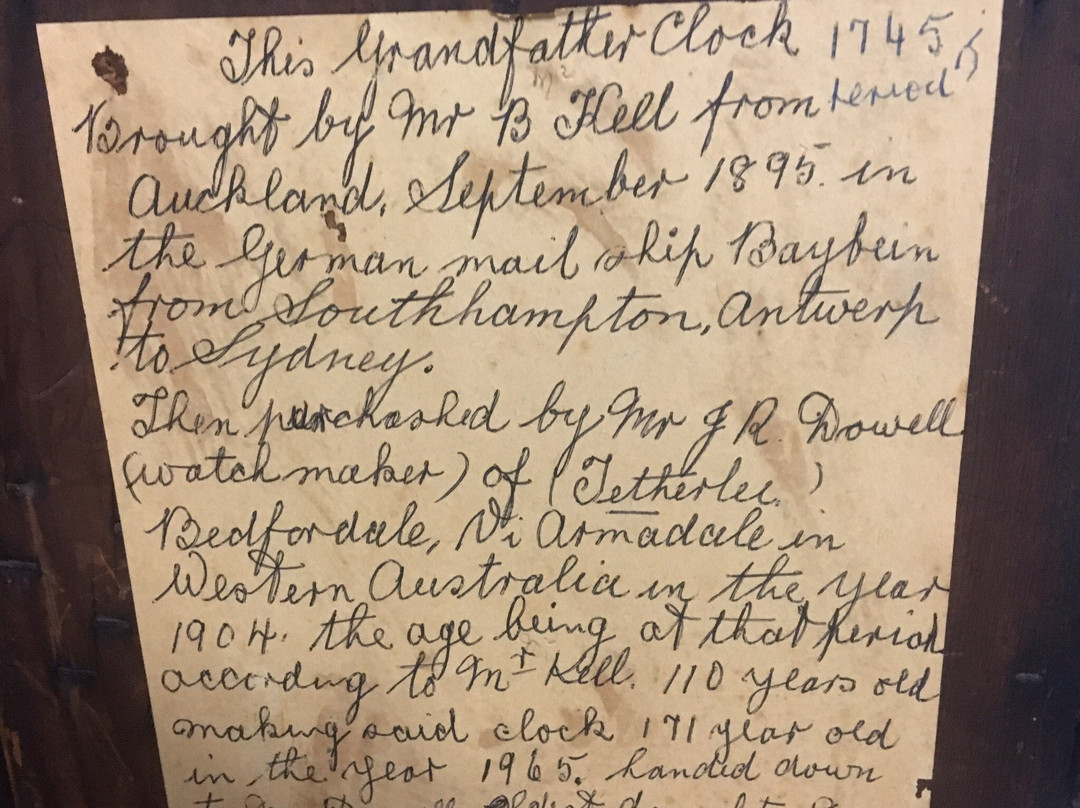 This Grandfather Clock 1745
period
Brought by Mr B Kell from
Auckland, September 1895. in
the German mail ship Baybein
from Southhampton, Antwerp
to Sydney.
Then purchashed by Mr J R. Dowell
(watchmaker) of (Tetherlee.)
Bedfordale, Vi Armadale in
Western Australia in the year
1904. the age being at that period
according to Mr Kell. 110 years old
making said clock 171 year old
in the year 1965. handed down